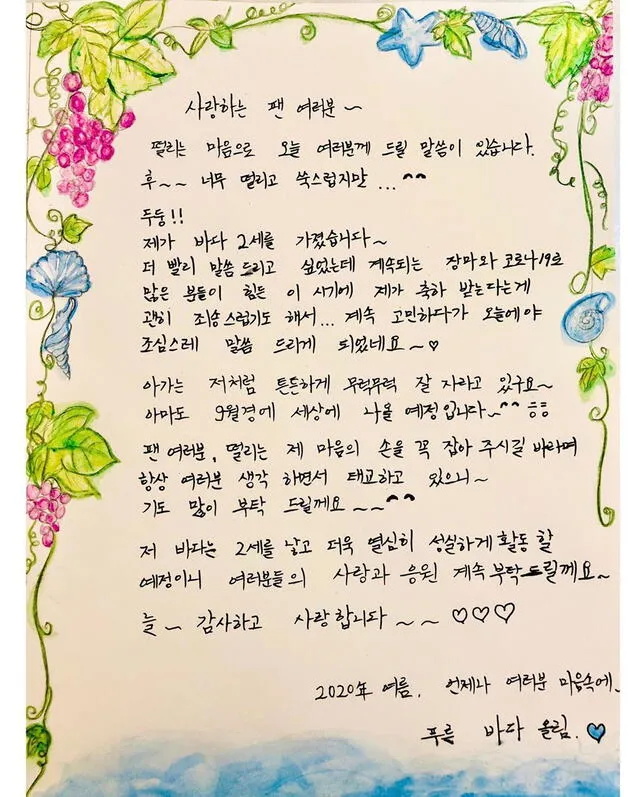 사랑하는 팬 여러분~
떨리는 마음으로 오늘 여러분께 드릴 말씀이 있습니다.
후~~ 너무 떨리고 쑥스럽지만 ...^^
두둥!!
제가 바다 2세를 가졌습니다~
더 빨리 말씀 드리고 싶었는데 계속되는 장마와 코로나19로
많은 분들이 힘든 이 시기에 제가 축하 받는다는게
괜히 죄송스럽기도 해서... 계속 고민하다가 오늘에야
조심스레 말씀 드리게 되었네요~♡
아가는 저처럼 튼튼하게 무럭무럭 잘 자라고 있구요~
아마도 9월경에 세상에 나올 예정입니다~^^ ㅎㅎ
팬 여러분, 떨리는 제 마음의 손을 꼭 잡아 주시길 바라며
항상 여러분 생각 하면서 태교하고 있으니~
기도 많이 부탁 드릴께요~~^^
저 바다는 2세를 낳고 더욱 열심히 성실하게 활동 할
예정이니 여러분들의 사랑과 응원 계속 부탁드릴께요~
늘~ 감사하고 사랑합니다~~ ♡♡♡
2020年 여름. 언제나 여러분 마음속에_
푸른 바다 올림.♡